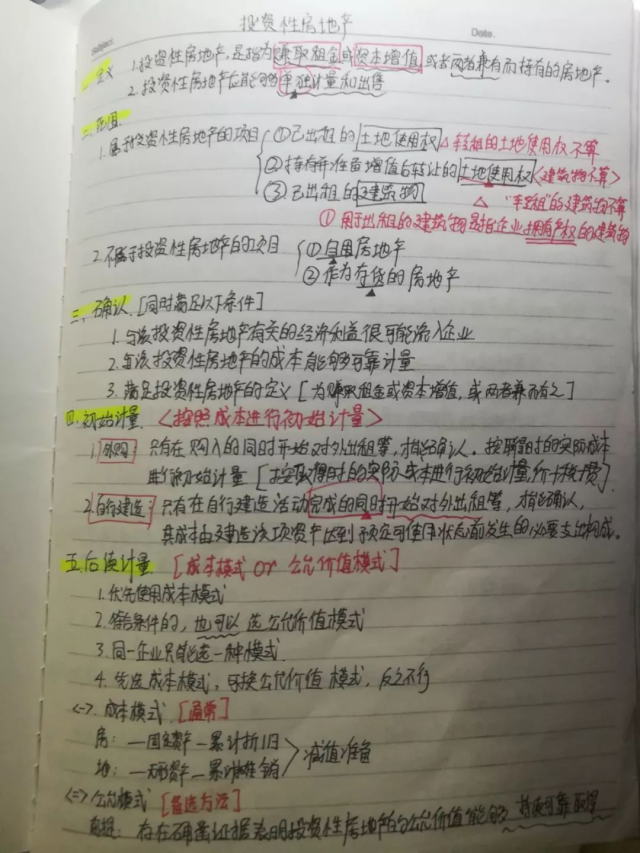 投资性房地产
Subject
Date.
一.定义 1.投资性房地产,是指为赚取租金或资本增值,或者两者兼有而持有的房地产。
2.投资性房地产应能够单独计量和出售
二.范围
1.属于投资性房地产的项目 ①已出租的土地使用权 △转租的土地使用权不算
②持有并准备增值后转让的土地使用权<建筑物不算>
③已出租的建筑物 △"转租"的建筑物不算
①用于出租的建筑物是指企业拥有产权的建筑物
2.不属于投资性房地产的项目 ①自用房地产
②作为存货的房地产
三.确认.[同时满足以下条件]
1.与该投资性房地产有关的经济利益很可能流入企业
2.与该投资性房地产的成本能够可靠计量
3.满足投资性房地产的定义[为赚取租金或资本增值,或两者兼而有之]
四.初始计量.<按照成本进行初始计量>
1.外购:只有在购入的同时开始对外出租等,才能确认.按取得时的实际成本
进行初始计量[按取得时的实际成本进行初始计量,价+税+费]
2.自行建造:只有在自行建造活动完成的同时开始对外出租等,才能确认,
其成本由建造该项资产达到预定可使用状态前发生的必要支出构成。
五.后续计量.[成本模式 or 公允价值模式]
1.优先使用成本模式
2.符合条件的,也可以选公允价值模式
3.同一企业只能选一种模式.
4.先选成本模式,可换公允价值模式,反之不行
<一>.成本模式.[通常]
房:—固定资产—累计折旧
地:—无形资产—累计摊销 >减值准备
<二>公允模式[备选方法]
前提:存在确凿证据表明投资性房地产的公允价值能够持续可靠取得